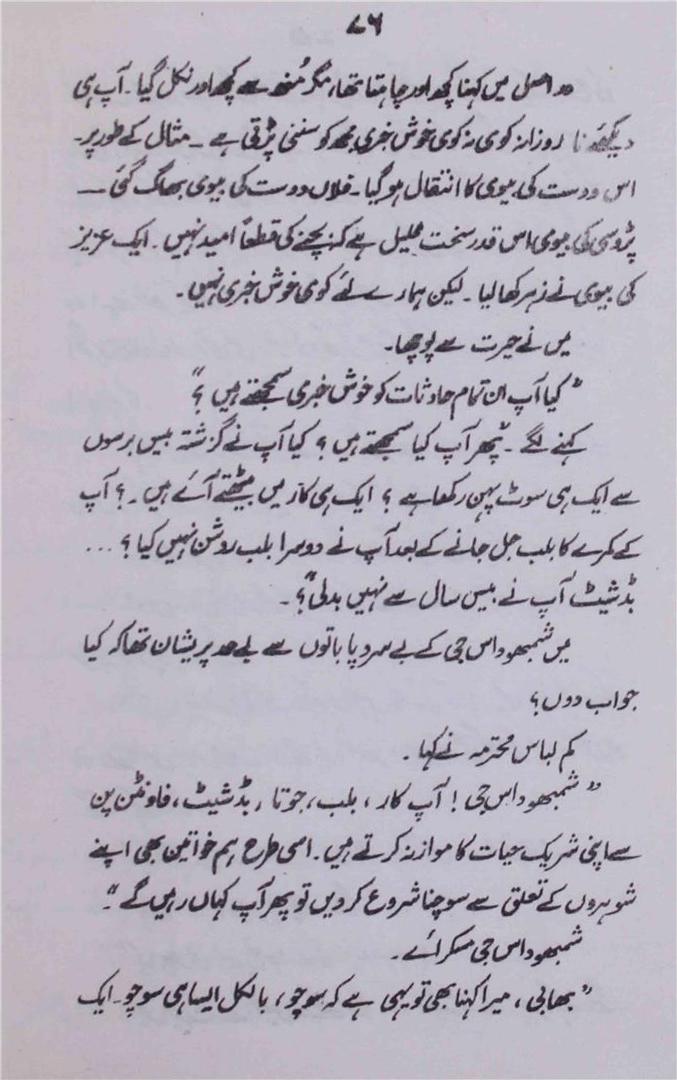 ۷۶
"در اصل میں کہنا کچھ اور چاہتا تھا، مگر مُنھ سے کچھ اور نکل گیا۔ آپ ہی
دیکھئے نا روزانہ کوی نہ کوی خوش خبری مجھ کو سننی پڑتی ہے ۔ مثال کے طور پر۔
اس دوست کی بیوی کا انتقال ہو گیا۔ فلاں دوست کی بیوی بھاگ گئی ۔
پڑوسی کی بیوی اس قدر سخت علیل ہے کہ بچنے کی قطعاً امید نہیں ۔ ایک عزیز
کی بیوی نے زہر کھا لیا ۔ لیکن ہمارے لئے کوی خوش خبری نہیں۔
میں نے حیرت سے پوچھا۔
"کیا آپ ان تمام حادثات کو خوش خبری سمجھتے ہیں ؟"
کہنے لگے ۔ "پھر آپ کیا سمجھتے ہیں ؟ کیا آپ نے گزشتہ بیس برسوں
سے ایک ہی سوٹ پہن رکھا ہے ؟ ایک ہی کار میں بیٹھتے آئے ہیں ۔ ؟ آپ
کے کمرے کا بلب جل جانے کے بعد آپ نے دوسرا بلب روشن نہیں کیا ؟ ...
بڈ شیٹ آپ نے بیس سال سے نہیں بدلی ؟"۔
میں شمبھو داس جی کے بے سروپا باتوں سے بے حد پریشان تھا کہ کیا
جواب دوں ؟
کم لباس محترمہ نے کہا۔
"شمبھو داس جی ! آپ کار ، بلب ، جوتا ، بڈ شیٹ ، فاونٹن پن
سے اپنی شریک حیات کا موازنہ کرتے ہیں۔ اسی طرح ہم خواتین بھی اپنے
شوہروں کے تعلق سے سوچنا شروع کر دیں تو پھر آپ کہاں رہیں گے"۔
شمبھو داس جی مسکرائے۔
"بھابی ، میرا کہنا بھی تو یہی ہے کہ سوچو ، بالکل ایسا ہی سوچو۔ ایک